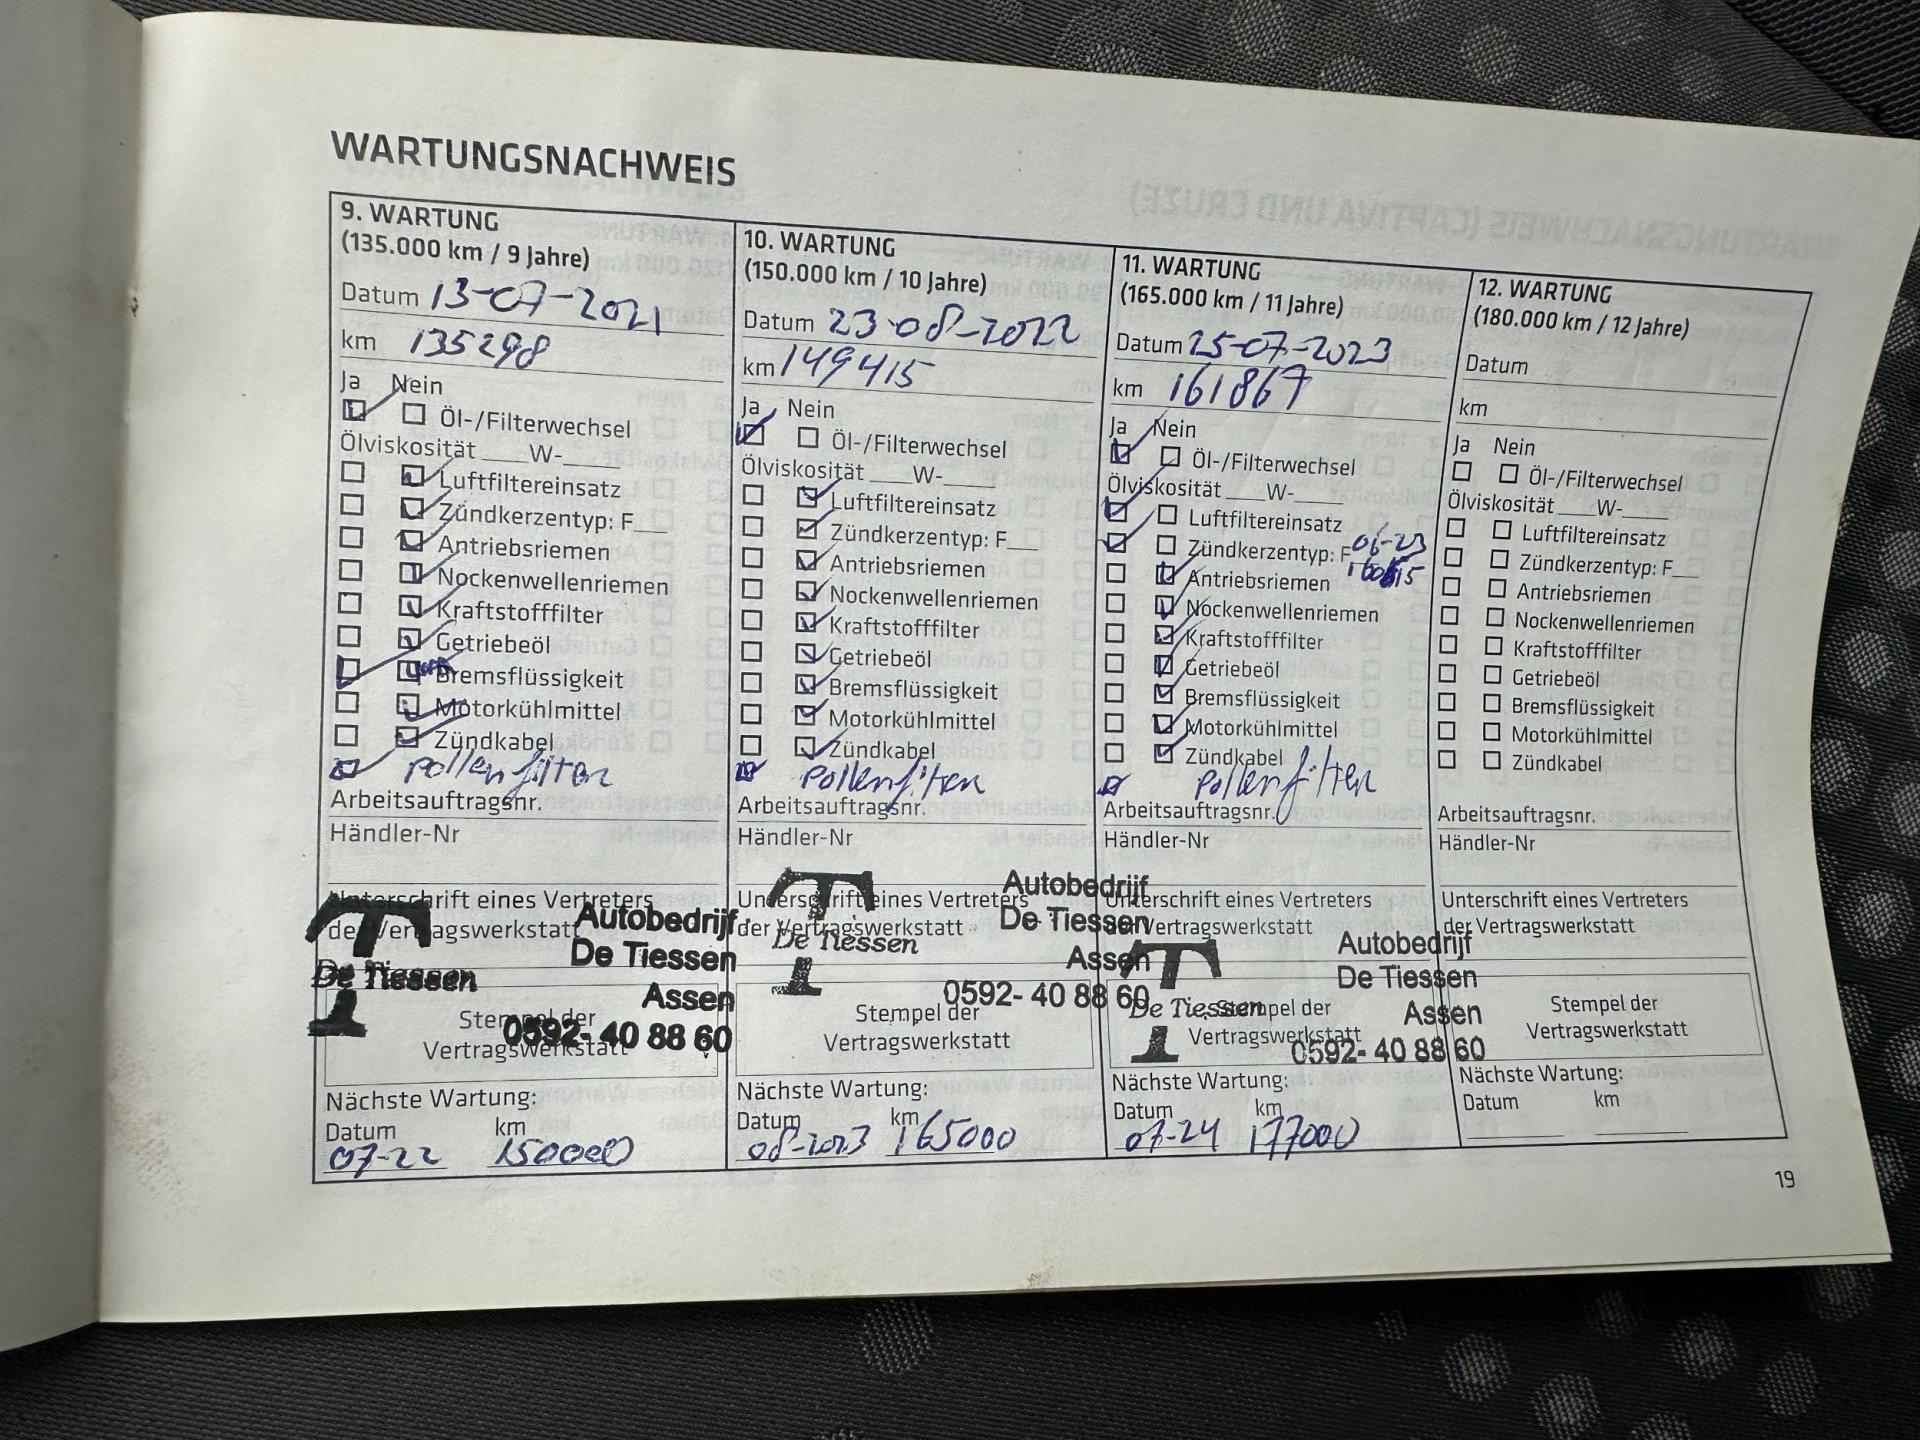 WARTUNGSNACHWEIS
9. WARTUNG
(135.000 km / 9 Jahre)
Datum 13-07-2021
km 135298
Ja Nein
Öl-/Filterwechsel
Ölviskosität ___W-___
Luftfiltereinsatz
Zündkerzentyp: F__
Antriebsriemen
Nockenwellenriemen
Kraftstofffilter
Getriebeöl
Bremsflüssigkeit
Motorkühlmittel
Zündkabel
Pollenfilter
Arbeitsauftragsnr.
Händler-Nr
Unterschrift eines Vertreters
der Vertragswerkstatt
De Tiessen
Autobedrijf
De Tiessen
Assen
0592- 40 88 60
Stempel der
Vertragswerkstatt
Nächste Wartung:
Datum km
07-22 150000
10. WARTUNG
(150.000 km / 10 Jahre)
Datum 23-08-2022
km 149415
Ja Nein
Öl-/Filterwechsel
Ölviskosität ___W-___
Luftfiltereinsatz
Zündkerzentyp: F__
Antriebsriemen
Nockenwellenriemen
Kraftstofffilter
Getriebeöl
Bremsflüssigkeit
Motorkühlmittel
Zündkabel
Pollenfilter
Arbeitsauftragsnr.
Händler-Nr
Unterschrift eines Vertreters
der Vertragswerkstatt
De Tiessen
Autobedrijf
De Tiessen
Assen
0592- 40 88 60
Stempel der
Vertragswerkstatt
Nächste Wartung:
Datum km
08-2023 165000
11. WARTUNG
(165.000 km / 11 Jahre)
Datum 25-07-2023
km 161867
Ja Nein
Öl-/Filterwechsel
Ölviskosität ___W-___
Luftfiltereinsatz
Zündkerzentyp: F 06-23
Antriebsriemen
Nockenwellenriemen
Kraftstofffilter
Getriebeöl
Bremsflüssigkeit
Motorkühlmittel
Zündkabel
Pollenfilter
Arbeitsauftragsnr.
Händler-Nr
Unterschrift eines Vertreters
der Vertragswerkstatt
De Tiessen
Autobedrijf
De Tiessen
Assen
0592- 40 88 60
Stempel der
Vertragswerkstatt
Nächste Wartung:
Datum km
07-24 177000
12. WARTUNG
(180.000 km / 12 Jahre)
Datum
km
Ja Nein
Öl-/Filterwechsel
Ölviskosität ___W-___
Luftfiltereinsatz
Zündkerzentyp: F__
Antriebsriemen
Nockenwellenriemen
Kraftstofffilter
Getriebeöl
Bremsflüssigkeit
Motorkühlmittel
Zündkabel
Arbeitsauftragsnr.
Händler-Nr
Unterschrift eines Vertreters
der Vertragswerkstatt
Stempel der
Vertragswerkstatt
Nächste Wartung:
Datum km
19